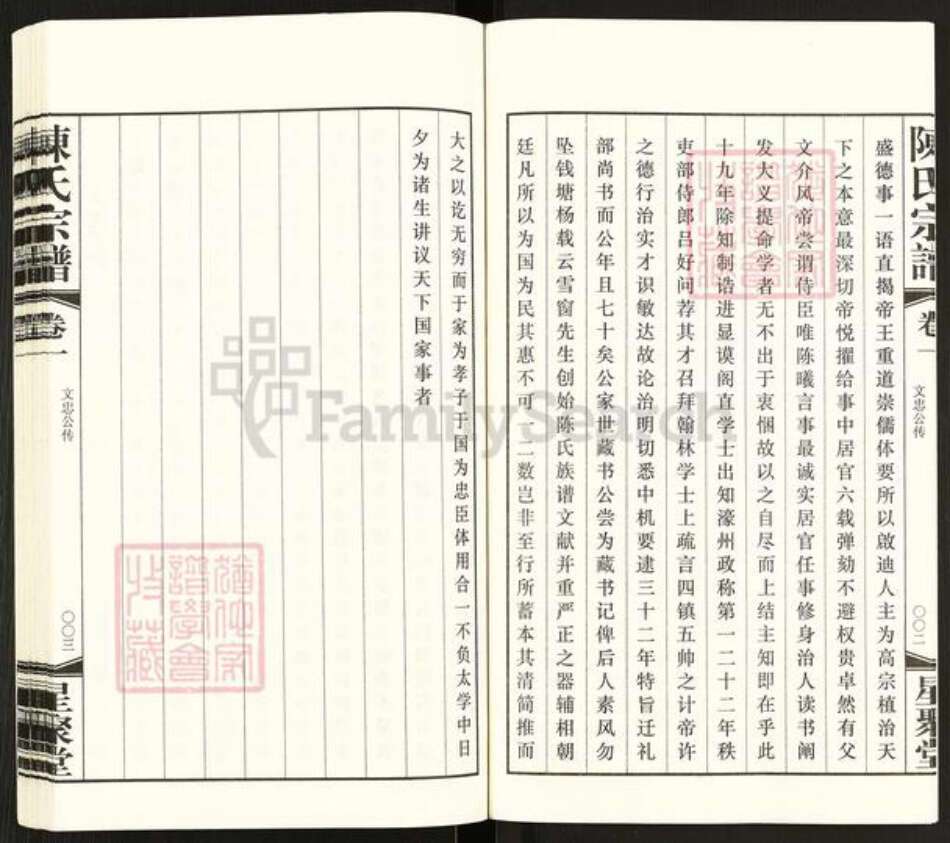 陳氏宗譜
卷一
文忠公传
〇〇二
星聚堂
盛德事一语直揭帝王重道崇儒体要所以啟迪人主为高宗植治天
下之本意最深切帝悦擢给事中居官六载弹劾不避权贵卓然有父
文介风帝尝谓侍臣唯陈曦言事最诚实居官任事修身治人读书阐
发大义提命学者无不出于衷悃故以之自尽而上结主知即在乎此
十九年除知制诰进显谟阁直学士出知濠州政称第一二十二年秩
吏部侍郎吕好问荐其才召拜翰林学士上疏言四镇五帅之计帝许
之德行治实才识敏达故论治明切悉中机要逮三十二年特旨迁礼
部尚书而公年且七十矣公家世藏书公尝为藏书记俾后人素风勿
坠钱塘杨载云雪窗先生创始陈氏族谱文献并重严正之器辅相朝
廷凡所以为国为民其惠不可一二数岂非至行所蓄本其清简推而
大之以讫无穷而于家为孝子于国为忠臣体用合一不负太学中日
夕为诸生讲议天下国家事者
陳氏宗譜
卷一
文忠公传
〇〇三
星聚堂
FamilySearch